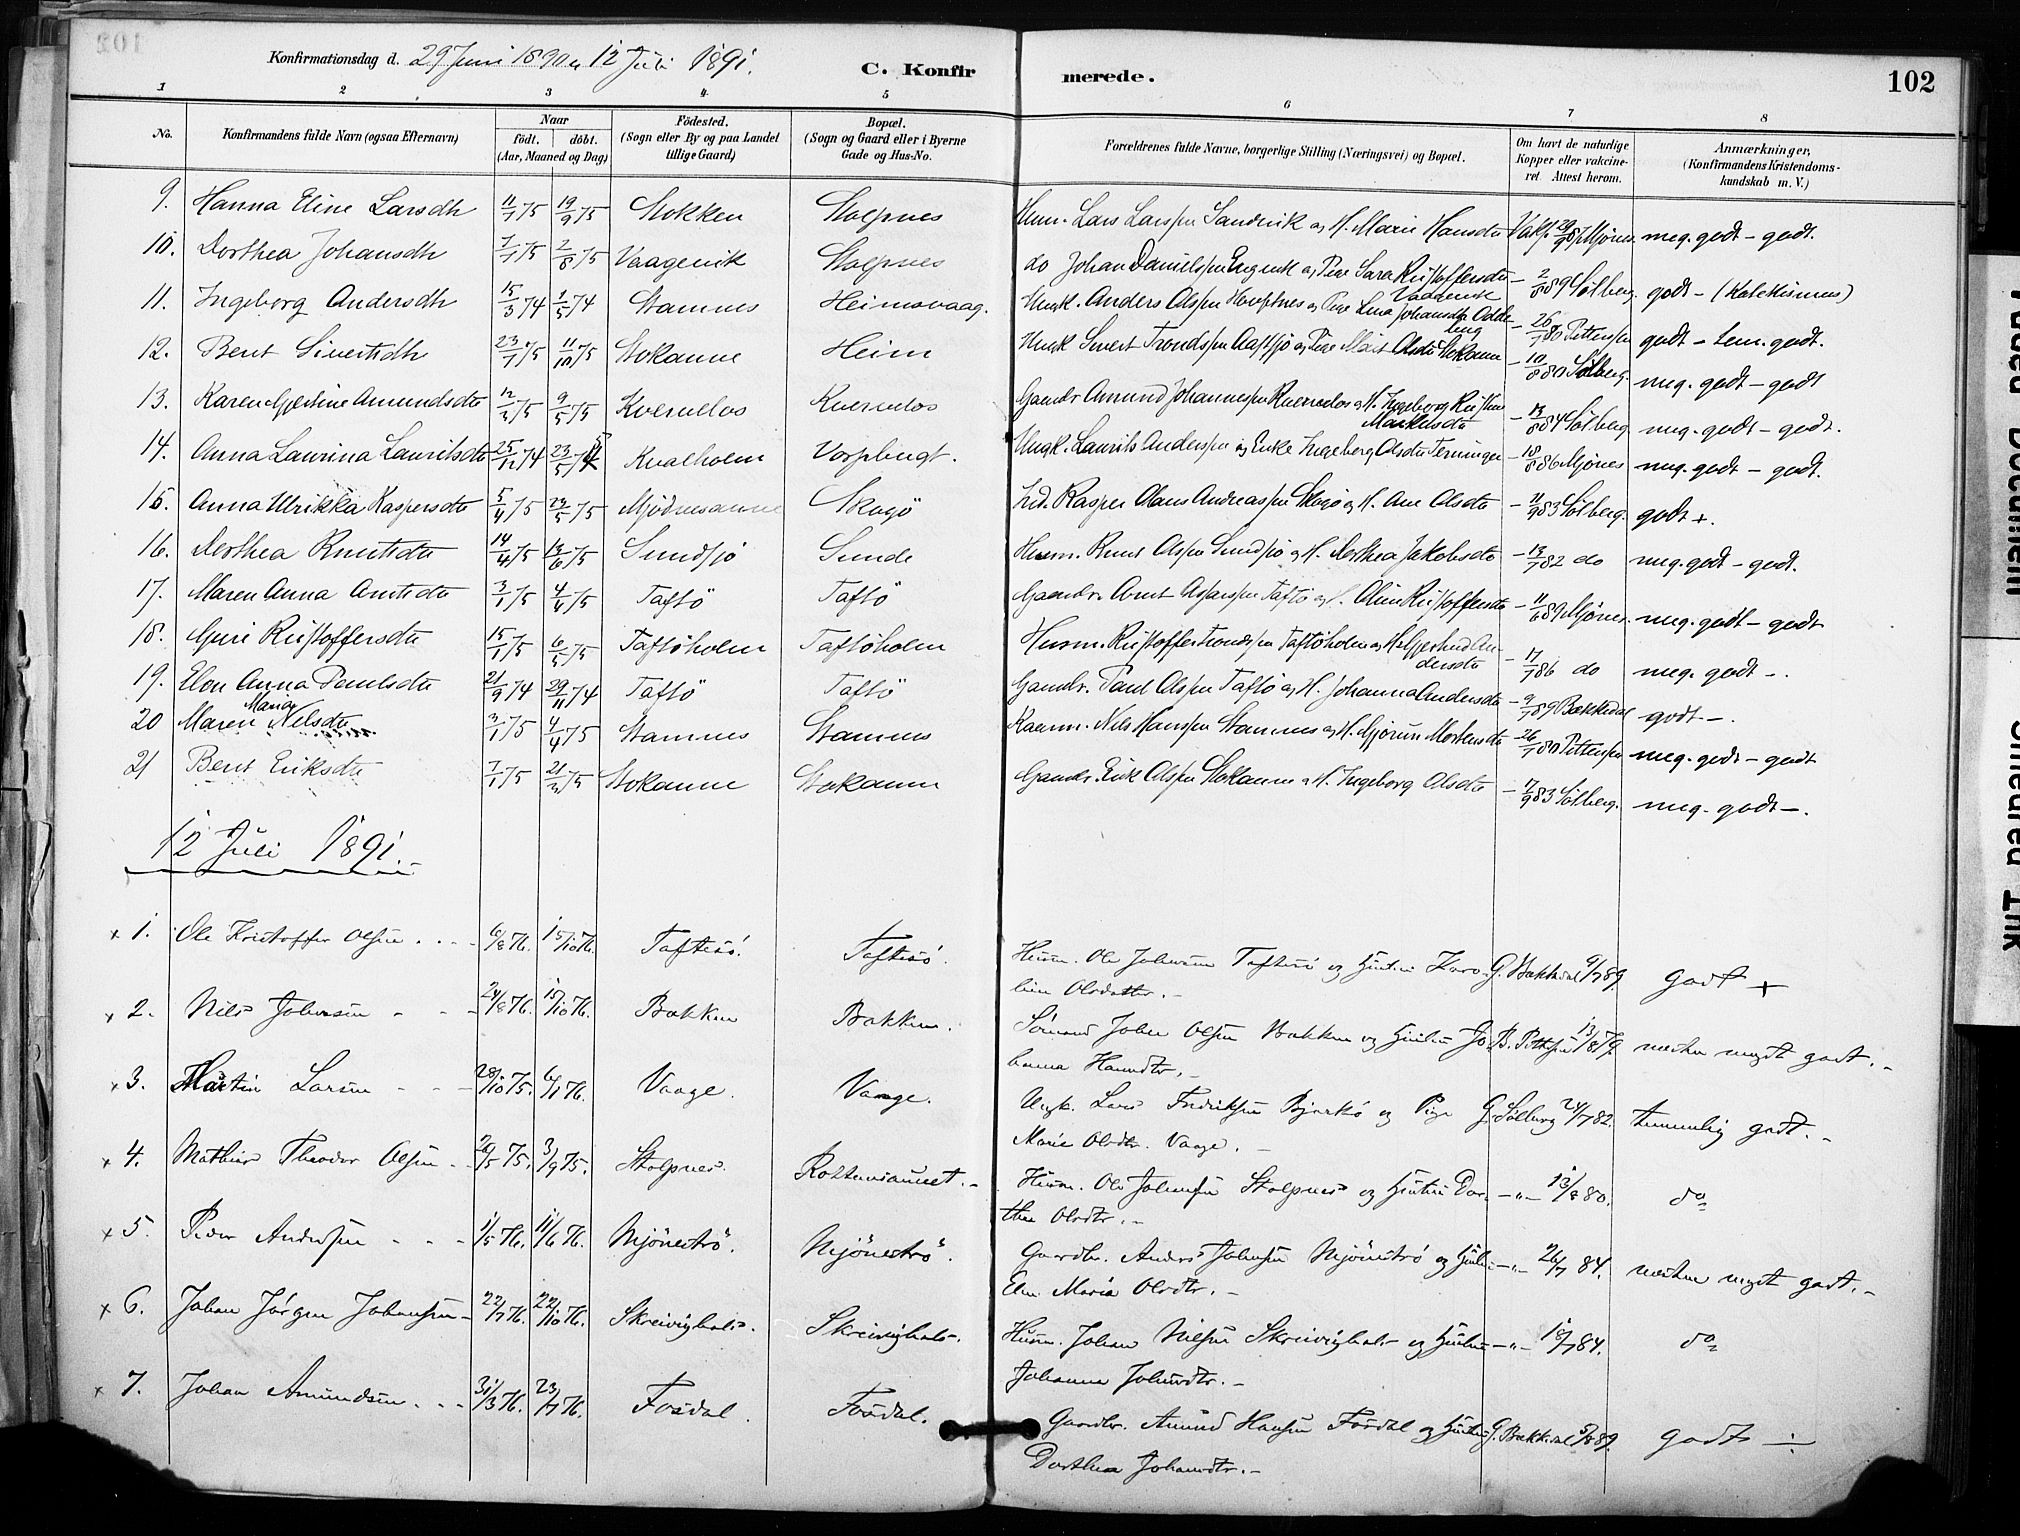 Konfirmationsdag d. 29 Juni 1890 & 12 Juli 1891.
C. Konfirmerede.
102
1 2 3 4 5 6 7 8
No. Konfirmandens fulde Navn (ogsaa Efternavn) Naar födt. döbt. (Aar, Maaned og Dag) Födested. (Sogn eller By og paa Landet tillige Gaard) Bopæl. (Sogn og Gaard eller i Byerne Gade og Hus-No. Forældrenes fulde Navne, borgerlige Stilling (Næringsvei) og Bopæl. Om havt de naturlige Kopper eller vakcineret. Attest herom. Anmærkninger, (Konfirmandens Kristendomskundskab m. V.)
9. Hanna Eline Larsdtr 11/7 75 19/9 75 Stokken Stolpnes Husm. Lars Larssen Sandvik og H. Marie Hansdtr Vakc. Mjönes. meg. godt - godt.
10. Dorthea Johansdtr 7/7 75 2/8 75 Vaagevik Stolpnes do Johan Danielssen Engvik og Pige Sara Kristoffersdtr Vaagevik - 2/8 89 Sölberg. godt - (Katekismus)
11. Ingeborg Andersdtr 15/3 74 1/5 74 Stamnes Heimsvaag. Ungk. Anders Olssen og Pige Lena Johansdtr - 26/7 80 Pettersen godt - tem. godt.
12. Berit Sivertsdtr 23/7 75 11/10 75 Stokanne Heim Ungk Sivert Trondssen og Pige Marit Olsdtr Stokanne - 10/8 80 Sölberg. meg. godt - godt
13. Karen Gjertine Amundsdtr 12/3 75 9/5 75 Kvernelos Kvernelos Gaardbr Amund Johannessen Kvernelos og H. Ingeborg - 13/8 84 Sölberg meg. godt - godt.
14. Anna Laurina Lauritsdtr 25/12 74 23/5 75 Kvalholm Ungk. Laurits Anderssen og Enke Ingeborg Olsdtr Terningen - 18/8 86 Mjönes meg. godt - godt.
15. Anna Ulrikka Kaspersdtr 5/4 75 23/5 75 Skogö Kasper Olaus Andreassen Skogö og H. Ane Olsdtr - 11/9 83 Sölberg. godt +.
16. Dorthea Knutsdtr 14/4 75 13/6 75 Sundsjö Sunde Husm. Knut Olssen Sundsjö og H. Dorthea Jakobsdtr - 13/7 82 do meg. godt - godt.
17. Maren Anna Arntsdtr 3/1 75 4/4 75 Taftö Taftö Gaardbr. Arnt Taftö og H. Oline Kristoffersdtr - 11/6 89 Mjönes. meg. godt - godt
18. Guri Kristoffersdtr 15/1 75 6/5 75 Taftöholm Taftöholm Husm. Kristoffer Trondssen Taftöholm og H. Gjertrud Andersdtr - 17/7 86 do meg. godt -.
19. Elen Anna Paulsdtr 21/9 74 29/11 74 Taftö Taftö Gaardbr. Paul Olssen Taftö og H. Johanna Andersdtr - 9/7 89 Bækkedal godt -.
20 Maren Maria Nilsdtr 3/1 75 4/4 75 Stamnes Stamnes Nils Hanssen Stamnes og H. Gjörun Mortensdtr - 26/7 80 Pettersen meg. godt - godt
21 Berit Eriksdtr 7/1 75 21/3 75 Stokanne Stokanne Gaardbr. Erik Olssen Stokanne og H. Ingeborg Olsdtr - 7/9 83 Sölberg. meg. godt -.
12 Juli 1891.
x 1. Ole Kristoffer Olsen 6/8 76. 15/10 76. Taftesö. Taftesö. Husm. Ole Johnsen Taftesö og Hustru Karoline Olsdatter. - G. Bækkedal 9/7 89. Godt +
x 2. Nils Johnsen - - 24/8 76. 15/10 76. Bakken Bakken. Sömand John Olsen Bakken og Hustru Johanna Hansdtr. - B. Pettersen 13/8 79. næsten meget godt. -
x 3. Martin Larsen - - 28/10 75. 6/1 76. Vaage. Vaage. Ungk. Lars Fredriksen Bjerkö og Pige Marie Olsdtr. Vaage. - G. Sölberg 24/7 82. temmelig godt. -
x 4. Mathias Theodor Olsen 26/5 75. 3/9 75. Stolpnes. Rottenaunet. - Husm. Ole Johansen Stolpnes og Hustru Dorthea Olsdtr. - -"- 13/8 80. do
x 5. Peder Andersen - - - 1/5 76. 11/6 76. Mjöneströ. Mjöneströ. Gaardbr. Anders Johnsen Mjöneströ og Hustru Elen Maria Olsdtr. - -"- 26/7 84. næsten meget godt. -
x 6. Johan Jörgen Johansen - 22/7 76. 22/10 76. Skreivighals. Skreivighals. Husm. Johan Nilsen Skreivighals og Hustru Johanna Johansdtr. - -"- 18/7 84. do
x 7. Johan Amundsen . . - 31/3 76. 23/7 76. Fosdal. Fosdal. Gaardbr. Amund Hansen Fosdal og Hustru Dorthea Johansdtr. - G. Bækkedal 5/8 89. godt ÷